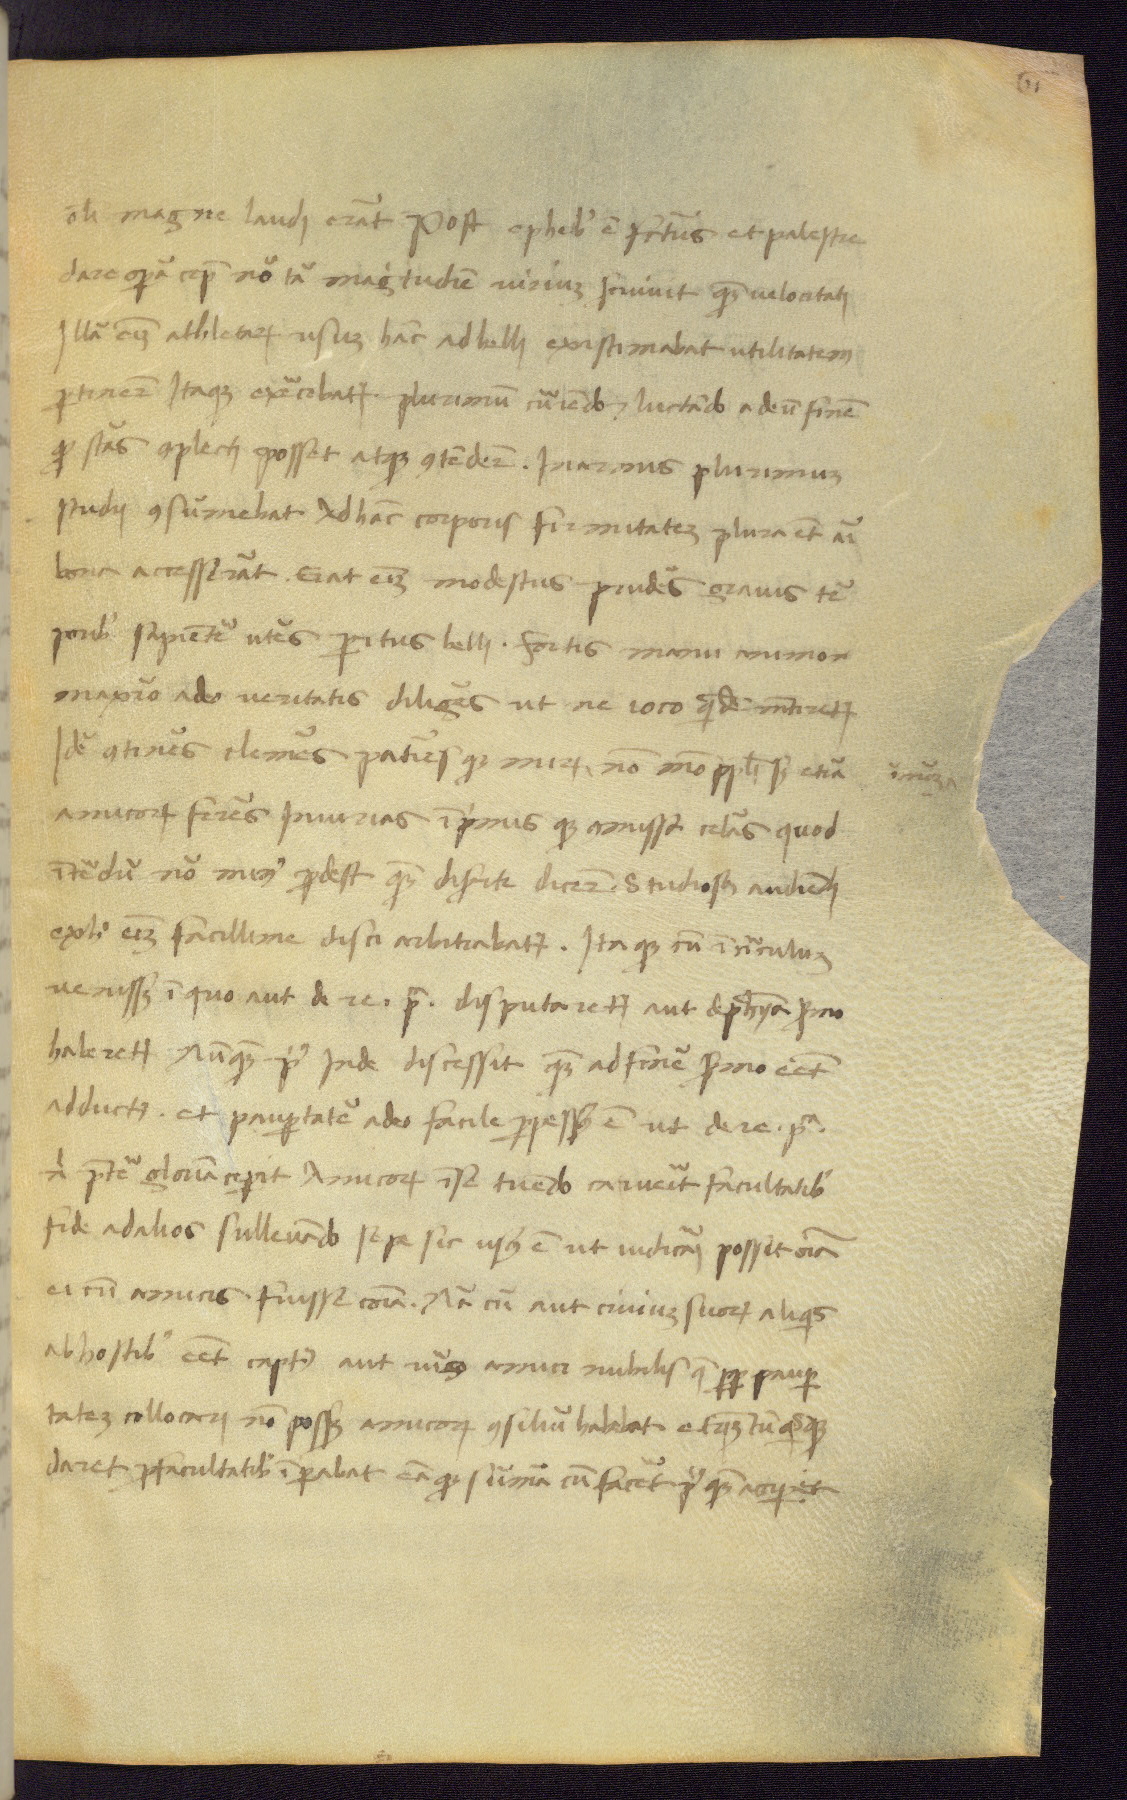 oli magne laudi erāt Post epheb9 ē factus et palestre
dare opā cepit nō tā magitudīe viriuz seruiuit qz velocitati
Illā eiz athletarꝝ usuz hāc ad belli existimabat utilitatem
ꝑtinere Itaqz exercebatᷣ plurimū currendo luctādo ad eū finē
quo stās ꝯplecti posset atqz ꝯtēdere. In armis plurimuz
studij ꝯsumebat Ad hāc corporis firmitatez plura et aī
bona accesserāt. Erat eīz modestus prudēs grauis tē
porib9 sapienter utēs peritus belli. fortis manu animo
maxīo adeo veritatis diligēs ut ne ioco qdē mētiretᷣ
Idē ꝯtinēs clemēs patiēsqz mirꝝ nō mō ppli sz etiā
amicorꝝ ferēs Iniurias īprimis qz comissa celās quod
īterdū nō min9 prodest qz diserte dicere. Studiosus audiendi
ex h̄ eīz facillime disci arbitrabatᷣ. Itaqz cū ī circuluz
venissz ī quo aut de re. p̄. disputaretᷣ aut de phīa sermo
haberetᷣ Nūqz pi9 inde discessit qz ad finē sermo eēt
adductꝰ. et pauꝑtatē adeo facile ꝑpessus ē ut de re. p̄.
nihil p̄ter gloriā ceperit Amicorꝝ ī se tuēdo caruit facultatib9
fide ad alios subleuādo sepe sic usus ē ut iudicari possit oīa
ei cū amicis fuisse coīa. Nā cū aut ciuiuz suorꝝ aliqs
ab hostib9 eēt captꝰ aut virgo amici nubilis q̄ ꝓpter pauꝑ
tatez collocari nō possz amicorꝝ ꝯsiliū habebat et qtū qsqz
daret ꝓ facultatib9 īperabat eāqz sūmā cū faceret pi9 qz acciperet